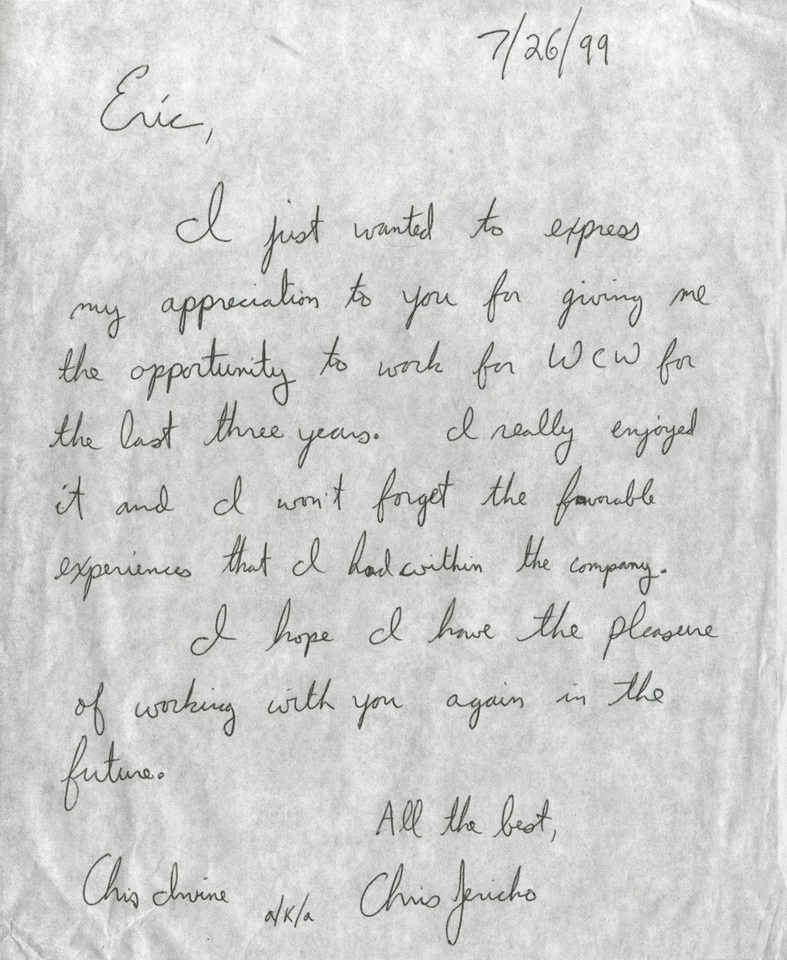 7/26/99
Eric,
I just wanted to express
my appreciation to you for giving me
the opportunity to work for WCW for
the last three years. I really enjoyed
it and I won't forget the favorable
experiences that I had within the company.
I hope I have the pleasure
of working with you again in the
future.
All the best,
Chris Irvine a/k/a Chris Jericho